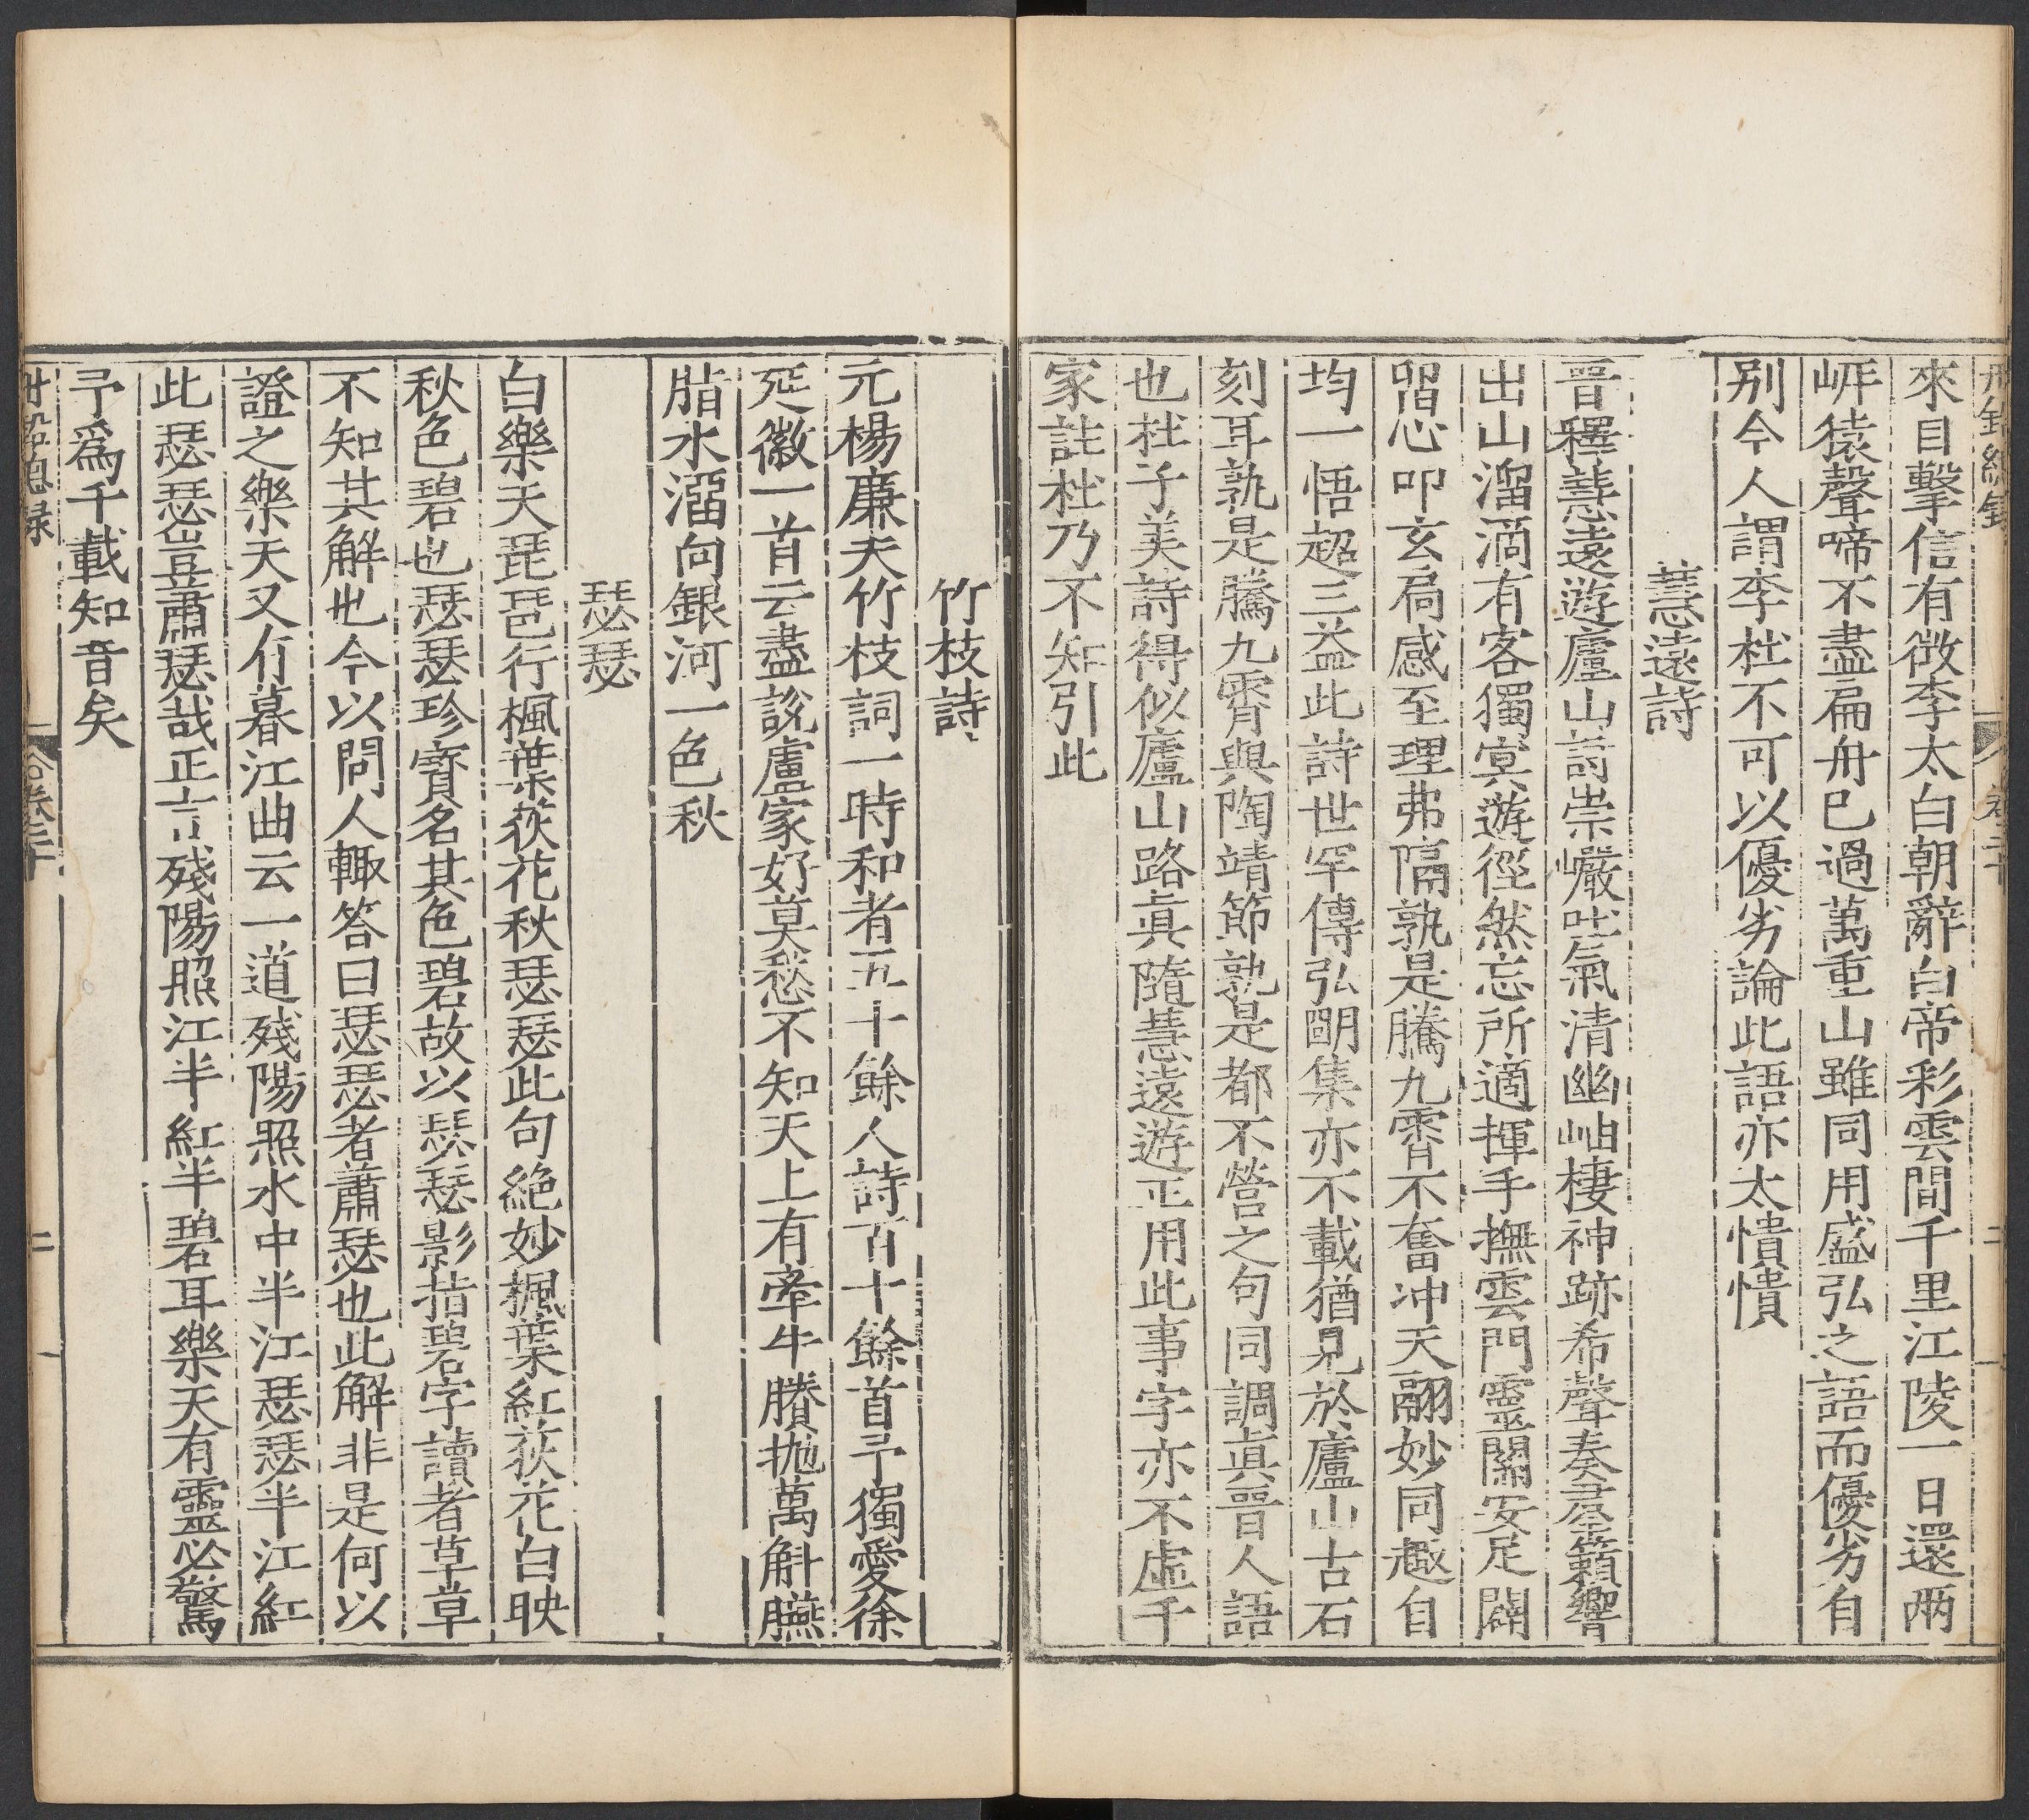 丹鉛總錄 卷二十 二
來目擊信有微李太白朝辭白帝彩雲間千里江陵一日還兩
岍猿聲啼不盡扁舟已過萬重山雖同用盛弘之語而優劣自
别今人謂李杜不可以優劣論此語亦太憒憒
慧遠詩
晉釋慧遠遊廬山詩崇巗吐氣清幽岫棲神跡希聲奏羣籟響
出山溜滴有客獨冥遊徑然忘所適揮手撫雲門靈關安足闢
畱心叩玄扃感至理弗隔孰是騰九霄不奮冲天翮妙同趣自
均一悟超三益此詩世罕傳弘明集亦不載猶見於廬山古石
刻耳孰是騰九霄與陶靖節孰是都不營之句同調真晉人語
也杜子美詩得似廬山路真隨慧遠遊正用此事字亦不虛千
家註杜乃不知引此
竹枝詩
元楊廉夫竹枝詞一時和者五十餘人詩百十餘首予獨愛徐
延徽一首云盡說盧家好莫愁不知天上有牽牛賸抛萬斛臙
脂水溜向銀河一色秋
瑟瑟
白樂天琵琶行楓葉荻花秋瑟瑟此句絶妙楓葉紅荻花白映
秋色碧也瑟瑟珍寳名其色碧故以瑟瑟影指碧字讀者草草
不知其解也今以問人輙答曰瑟瑟者蕭瑟也此解非是何以
證之樂天又有暮江曲云一道殘陽照水中半江瑟瑟半江紅
此瑟瑟豈蕭瑟哉正言殘陽照江半紅半碧耳樂天有靈必驚
予爲千載知音矣
丹鉛總録 卷二十 二